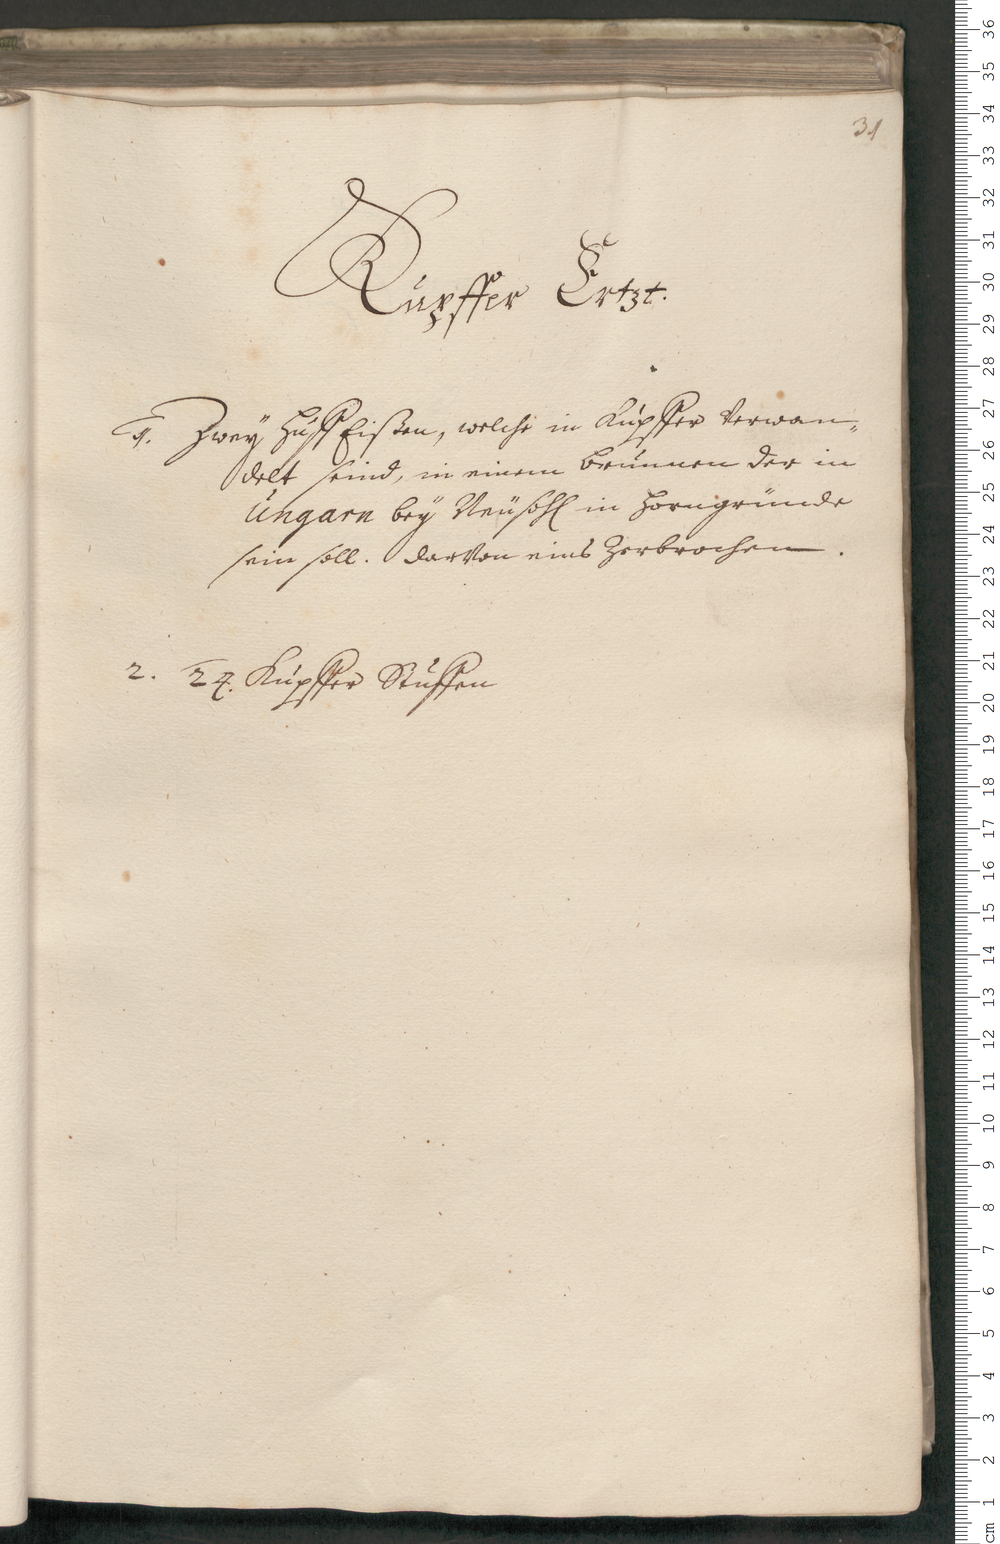 31
Kupffer Ertzt.
1. Zwey HuffEißen, welche in Kupffer Verwan¬
delt seind, in einem brunnen der in
Ungarn beÿ Neüsohl in Horngründe
sein soll. darVon eins Zerbrochen.
2. 24. Kupffer Stuffen
36
35
34
33
32
31
30
29
28
27
26
25
24
23
22
21
20
19
18
17
16
15
14
13
12
11
10
9
8
7
6
5
4
3
2
1
cm